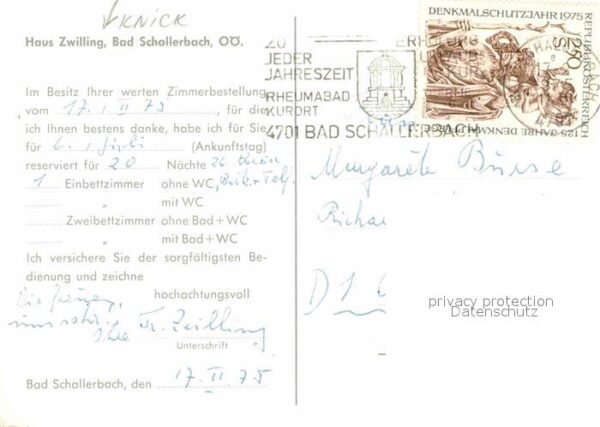 KNICK
Haus Zwilling, Bad Schallerbach, OÖ.
Im Besitz Ihrer werten Zimmerbestellung
vom 17. II 75, für die
ich Ihnen bestens danke, habe ich für Sie
für 6. Juli (Ankunftstag)
reserviert für 20 Nächte
1 Einbettzimmer ohne WC,
" mit WC
Zweibettzimmer ohne Bad+WC
" mit Bad+WC
Ich versichere Sie der sorgfältigsten Be-
dienung und zeichne
hochachtungsvoll
Wir freuen
uns sehr. Ihre Fr. Zwilling
Unterschrift
Bad Schallerbach, den 17. II 75
ZU
JEDER
JAHRESZEIT
RHEUMABAD
KURORT
4701 BAD SCHALLERBACH
ERHOLUNG
DENKMALSCHUTZJAHR 1975
REPUBLIK ÖSTERREICH
S 2.50
125 JAHRE DENKMALPFLEGE
Margarete Burse
D 1
privacy protection
Datenschutz